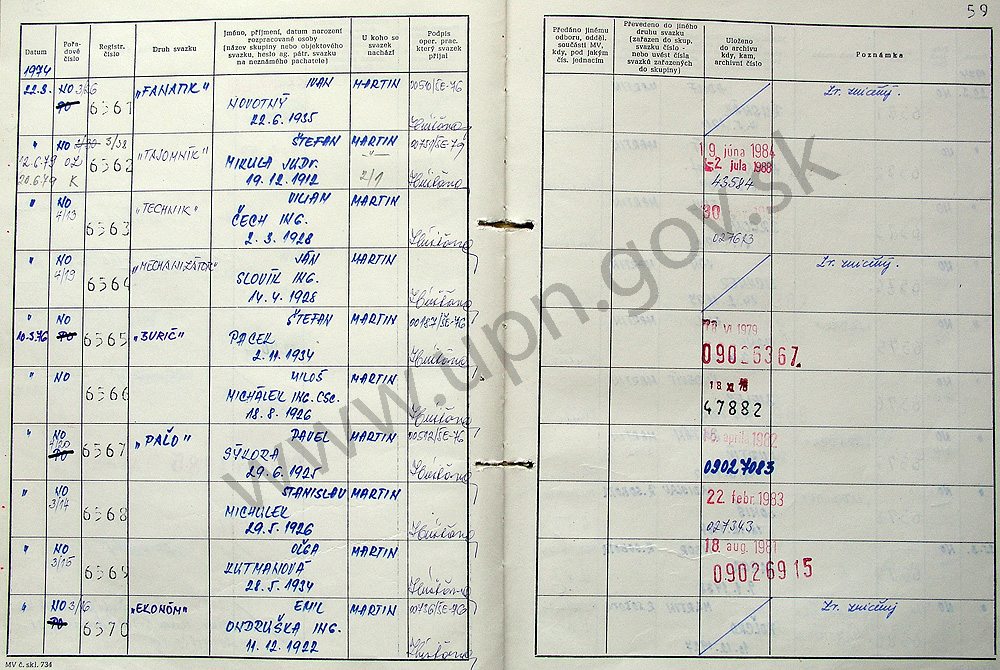 59
Datum
Pořadové číslo
Registr. číslo
Druh svazku
Jméno, příjmení, datum narození rozpracované osoby (název skupiny nebo objektového svazku, heslo ag. pátr. svazku na neznámého pachatele)
U koho se svazek nachází
Podpis oper. prac. který svazek přijmul
Předáno jinému odboru, odděl. součásti MV, kdy, pod jakým čís. jednacím
Převedeno do jiného druhu svazku (zařazen do skup. svazku číslo - nebo uvést čísla svazků zařazených do skupiny)
Uloženo do archivu kdy, kam, archivní číslo
Poznámka
1974
22.8. NO 3/26 6561 „FANATIK" IVAN MARTIN 00510/SE-76
NOVOTNÝ
22.6.1935
Zv. zničený.
" NO 3/38 6562 „TAJOMNÍK" ŠTEFAN MARTIN 00751/SE-79
12.6.79 OZ MIKULA JUDr.
20.6.79 K 19.12.1912 2/1
19 júna 1984
-2 júla 1988
43584
" NO 4/13 6563 „TECHNIK" VILIAN MARTIN
ČECH ING.
2.3.1928
027623
" NO 4/19 6564 „MECHANIZÁTOR" JÁN MARTIN
SLOVÍK ING.
14.4.1928
Zv. zničený.
" NO 6565 „ZURIČ" ŠTEFAN MARTIN 00187/SE-76
10.3.76 PACEK
2.11.1934
VI 1979
09026367.
" NO 6566 MILOŠ MARTIN
MICHÁLEK ING. CSC.
18.8.1926
18 XI 78
47882
" NO 6567 „PAĽO" PAVEL MARTIN 00512/SE-76
SÝKORA
29.6.1925
apríla 1982
09027083
" NO 3/14 6568 STANISLAV MARTIN
MICHULEK
29.5.1926
22 febr. 1983
027343
" NO 3/15 6569 OĽGA MARTIN
KUTMANOVÁ
28.5.1934
18. aug. 1981
09026915
" NO 3/16 6570 „EKONÓM" EMIL MARTIN
ONDRUŠKA ING.
11.12.1922
Zv. zničený
MV č. skl. 734
www.upn.gov.sk